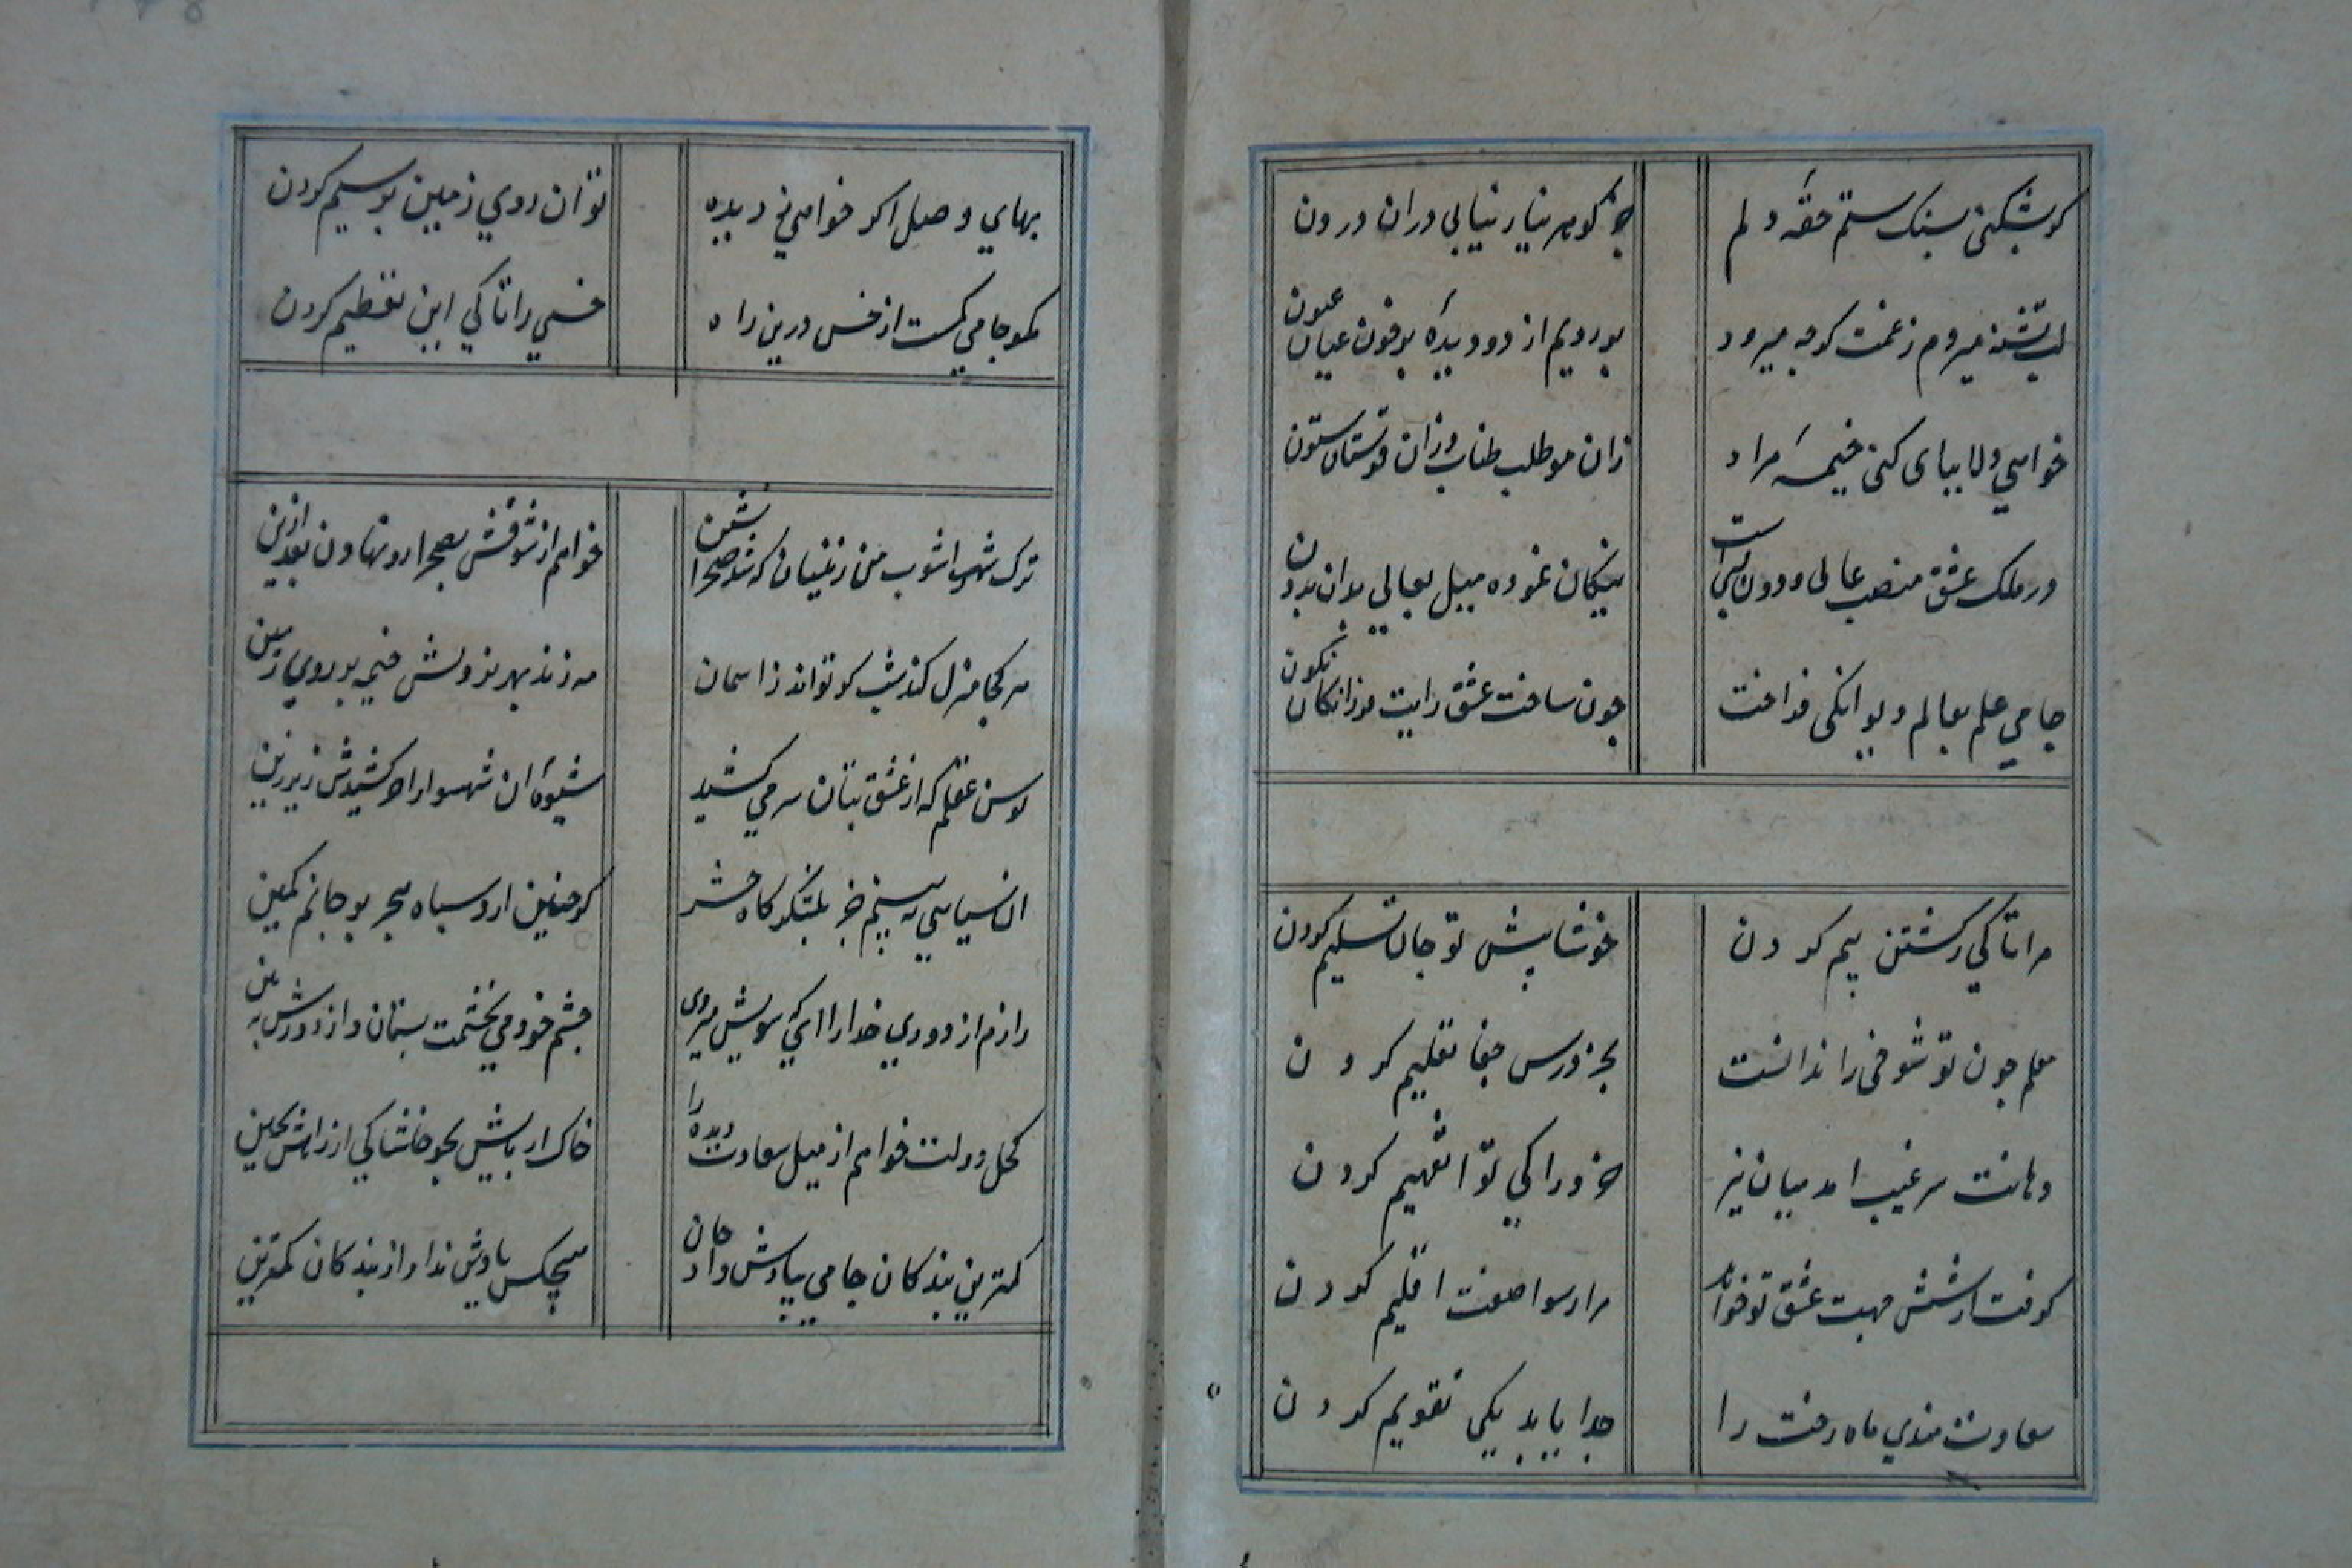 کر بشکنی بسنک ستم حقهٔ دلم جز کوهر نیاز نیابی دران درون
لب تشنه میروم زغمت کرچه میرود بر رویم از دو دیدهٔ پرخون عیان عیون
خواهی دلا بپای کنی خیمهٔ مراد زان مو طلب طناب وزان قد ستان ستون
در ملک عشق منصب عالی ودون بسی است نیکان نموده میل بعالی بدان بدون
جامی علم بعالم دیوانکی فراخت چون ساخت عشق رایت فرزانکان نکون
مرا تا کی زکشتن بیم کردن خوشا پیش تو جان تسلیم کردن
معلم چون تو شوخی را ندانست بجز درس جفا تعلیم کردن
دهانت سر غیب امد میان نیز خرد را کی توان تفهیم کردن
کرفت از شش جهت عشق تو خواند مرا رسوا هفت اقلیم کردن
سعادت مندی ماه رخت را جدا باید یکی تقویم کردن
بهای وصل اکر خواهی زدیده توان روی زمین پر سیم کردن
مکو جامی کمست از خس درین راه خسی را تا کی این تعظیم کردن
ترک شهراشوب من زینسان که شد صحرا نشین خواهم از شوقش بصحرا رو نهادن بعد ازین
هر کجا منزل کند شب کو تواند زاسمان مه زند بهر نزولش خیمه بر روی زمین
توسن عقلم که از عشق بتان سر می کشید شیوهٔ ان شهسوار اورد کشیدش زیر زین
ان سیاهی به بینم جز بلشکرکاه حشر کر چنین ارد سپاه هجر بر جانم کمین
رازم از دوری خدارا ای که سویش میروی چشم خود می بخشمت بستان واز دورش به بین
کحل دولت خواهم از میل سعادت دیده را خاک از پایش بجو خاشاکی از راهش بچین
کمترین بندکان جامی بیادش داد جان هیچکس یادش نداد از بندکان کمترین